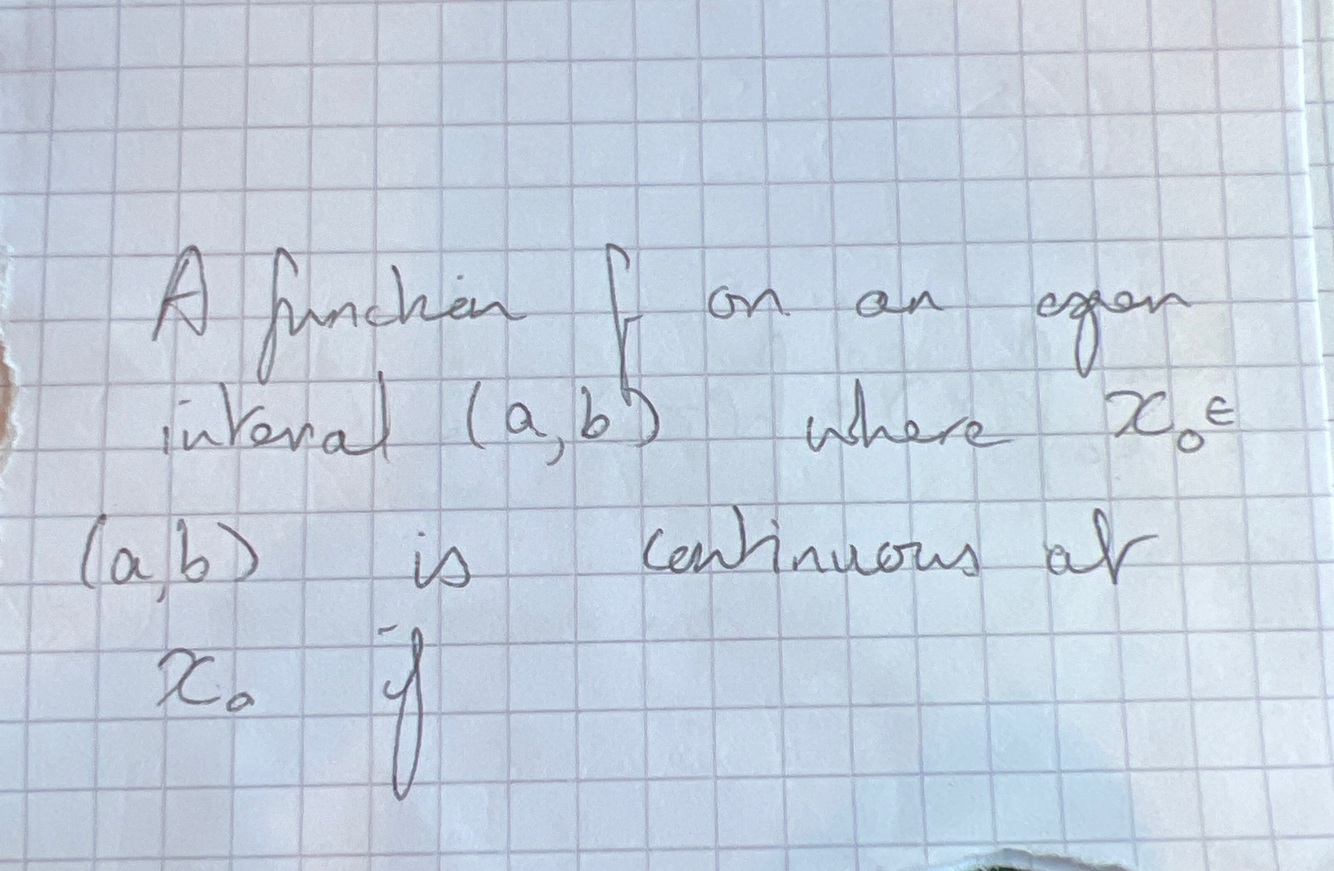 A function f on an open
interval (a,b) where x₀ ∈
(a,b) is continuous at
x₀ if